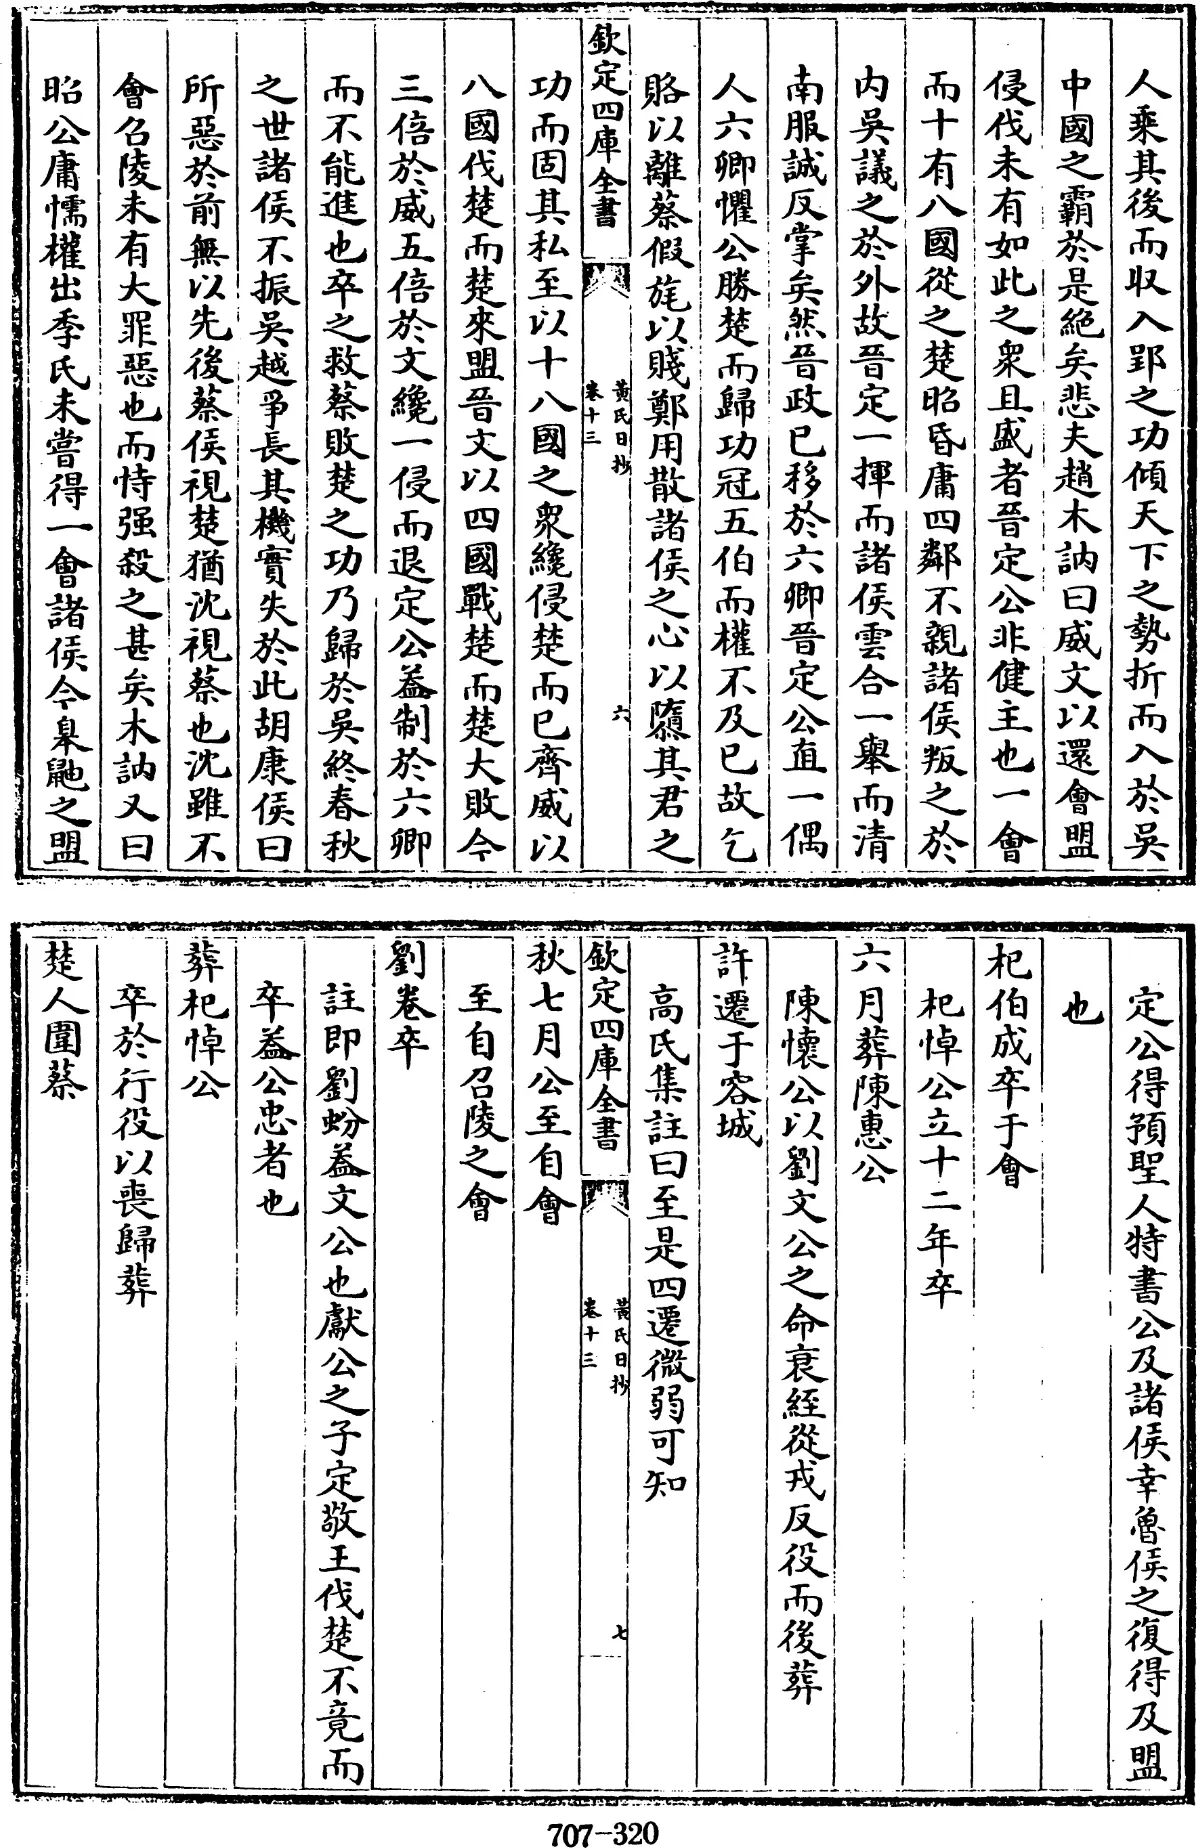 人乗其後而収入郢之功傾天下之勢折而入於吳
中國之霸於是絶矣悲夫趙木訥曰威文以還會盟
侵伐未有如此之衆且盛者晉定公非健主也一會
而十有八國從之楚昭昏庸四鄰不親諸侯叛之於
内吳議之於外故晉定一揮而諸侯雲合一舉而清
南服誠反掌矣然晉政已移於六卿晉定公直一偶
人六卿懼公勝楚而歸功冠五伯而權不及已故乞
賂以離蔡假旄以賤鄭用散諸侯之心以隳其君之
欽定四庫全書
黃氏日抄
卷十三
六
功而固其私至以十八國之衆纔侵楚而已齊威以
八國伐楚而楚來盟晉文以四國戰楚而楚大敗今
三倍於威五倍於文纔一侵而退定公葢制於六卿
而不能進也卒之救蔡敗楚之功乃歸於吳終春秋
之世諸侯不振吳越爭長其機實失於此胡康侯曰
所惡於前無以先後蔡侯視楚猶沈視蔡也沈雖不
會召陵未有大罪惡也而恃强殺之甚矣木訥又曰
昭公庸懦權出季氏未嘗得一會諸侯今臯鼬之盟
定公得預聖人特書公及諸侯幸魯侯之復得及盟
也
杞伯成卒于會
杞悼公立十二年卒
六月葬陳惠公
陳懷公以劉文公之命衰絰從戎反役而後葬
許遷于容城
高氏集註曰至是四遷微弱可知
欽定四庫全書
黃氏日抄
卷十三
七
秋七月公至自會
至自召陵之會
劉卷卒
註即劉蚡葢文公也獻公之子定敬王伐楚不竟而
卒葢公忠者也
葬杞悼公
卒於行役以喪歸葬
楚人圍蔡
707-320